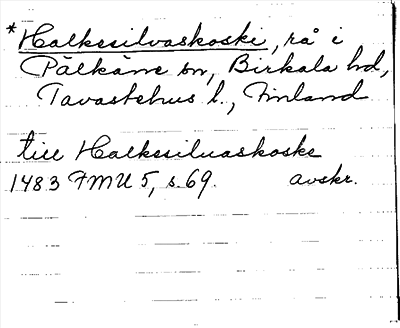 *Halkesilvaskoski, rå i
Pälkäne sn, Birkala hd,
Tavastehus l., Finland
till Halkesiluaskoske
1483 FMU 5, s. 69. avskr.